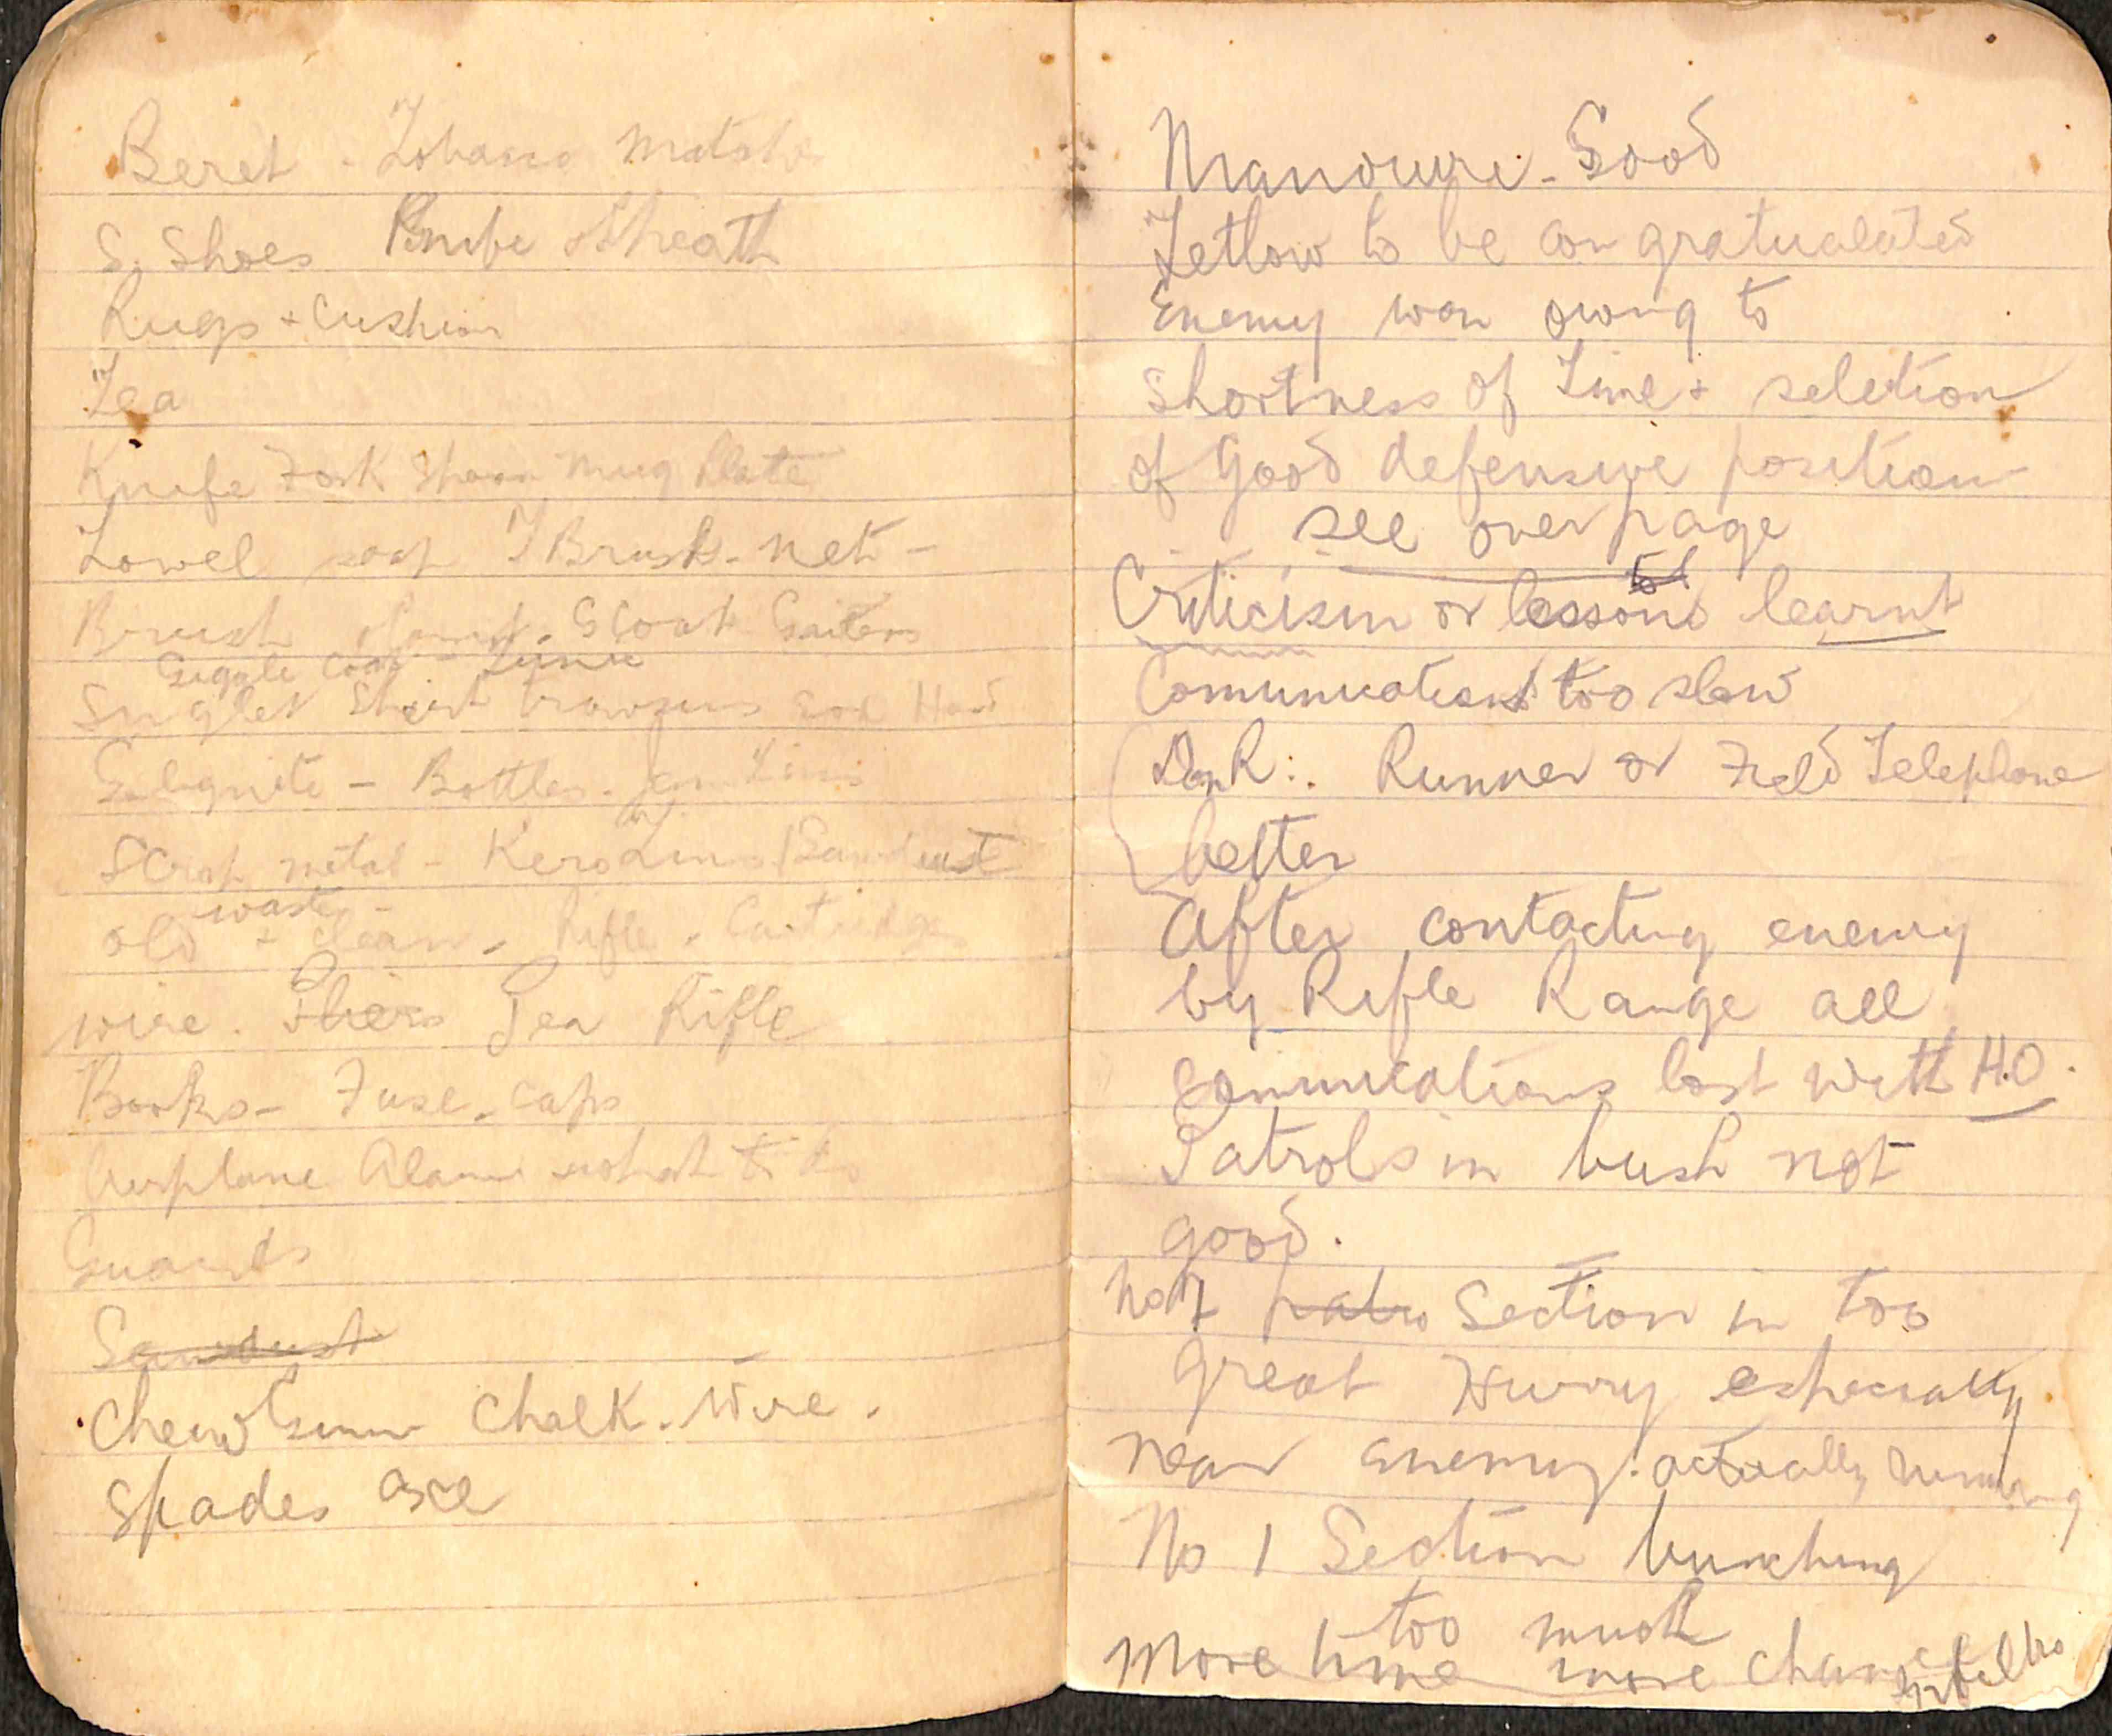 Beret - Tobacco Matches
S. Shoes Knife Sheath
Rugs + Cushion
Tea
Knife Fork Spoon Mug Plate
Towel soap T Brush - net -
Brush G Coat Gaiters
Giggle Coat - Tunic
Singlet Shirt trowsers Sox Hat
Gelignite - Bottles - Jam Tins
Scrap metal - Kero Tins Sawdust
waste -
old + clean - Rifle - Cartridges
wire. Pliers Pea Rifle
Books - Fuse - caps
Airplane Alarm what to do
Guards
Sawdust
Chew Gum Chalk. Wire.
Spades axe
Manouvre - Good
Tetlow to be congratualated
Enemy won owing to
Shortness of Time + seletion
of Good defensive position
see over page
Criticism or lessons learnt
Comunications too slow
Don R: Runner or Field Telephone
better
After contacting enemy
by Rifle Range all
Comunications lost with H.Q.
Patrols in bush not
good.
No 7 patro Section in too
great Hurry especially
near enemy. actually running
No 1 Section bunching
too much
More time more chance